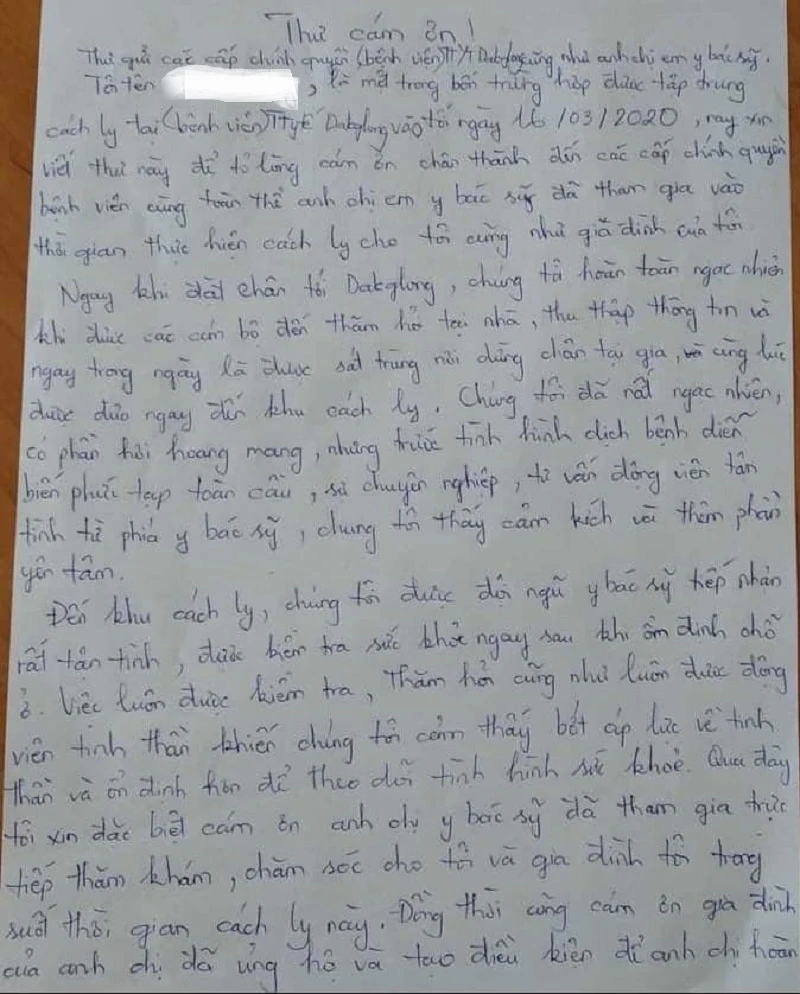 Thư cám ơn!
Thư gửi các cấp chính quyền (bệnh viện) TTYT Dakglong cũng như anh chị em y bác sỹ.
Tôi tên , là một trong bốn trường hợp được tập trung
cách ly tại (bệnh viện) TTytế Dakglong vào tối ngày 16/03/2020, nay xin
viết thư này để tỏ lòng cám ơn chân thành đến các cấp chính quyền
bệnh viên cùng toàn thể anh chị em y bác sỹ đã tham gia vào
thời gian thực hiện cách ly cho tôi cũng như gia đình của tôi
Ngay khi đặt chân tới Dakglong, chúng tô hoàn toàn ngạc nhiên
khi được các cán bộ đến thăm hỏ tại nhà, thu thập thông tin và
ngay trong ngày là được sát trùng nơi dừng chân tại gia, và cùng lúc
được đưa ngay đến khu cách ly. Chúng tôi đã rất ngạc nhiên,
có phần hơi hoang mang, nhưng trước tình hình dịch bệnh diễn
biến phức tạp toàn cầu, sự chuyên nghiệp, tư vấn động viên tân
tình từ phía y bác sỹ, chung tôi thấy cảm kích và thêm phần
yên tâm.
Đến khu cách ly, chúng tôi được đội ngũ y bác sỹ tiếp nhận
rất tận tình, được kiểm tra sức khỏe ngay sau khi ổn định chỗ
ở. Việc luôn được kiểm tra, Thăm hỏi cũng như luôn được động
viên tinh thần khiến chúng tôi cảm thấy bớt áp lực về tinh
thần và ổn định hơn để theo dõi tình hình sức khoẻ. Qua đây
tôi xin đặc biệt cám ơn anh chị y bác sỹ đã tham gia trực
tiếp thăm khám, chăm sóc cho tôi và gia đình tôi trong
suốt thời gian cách ly này. Đồng thời cũng cám ơn gia đình
của anh chị đã ủng hộ và tạo điều kiện để anh chị hoàn